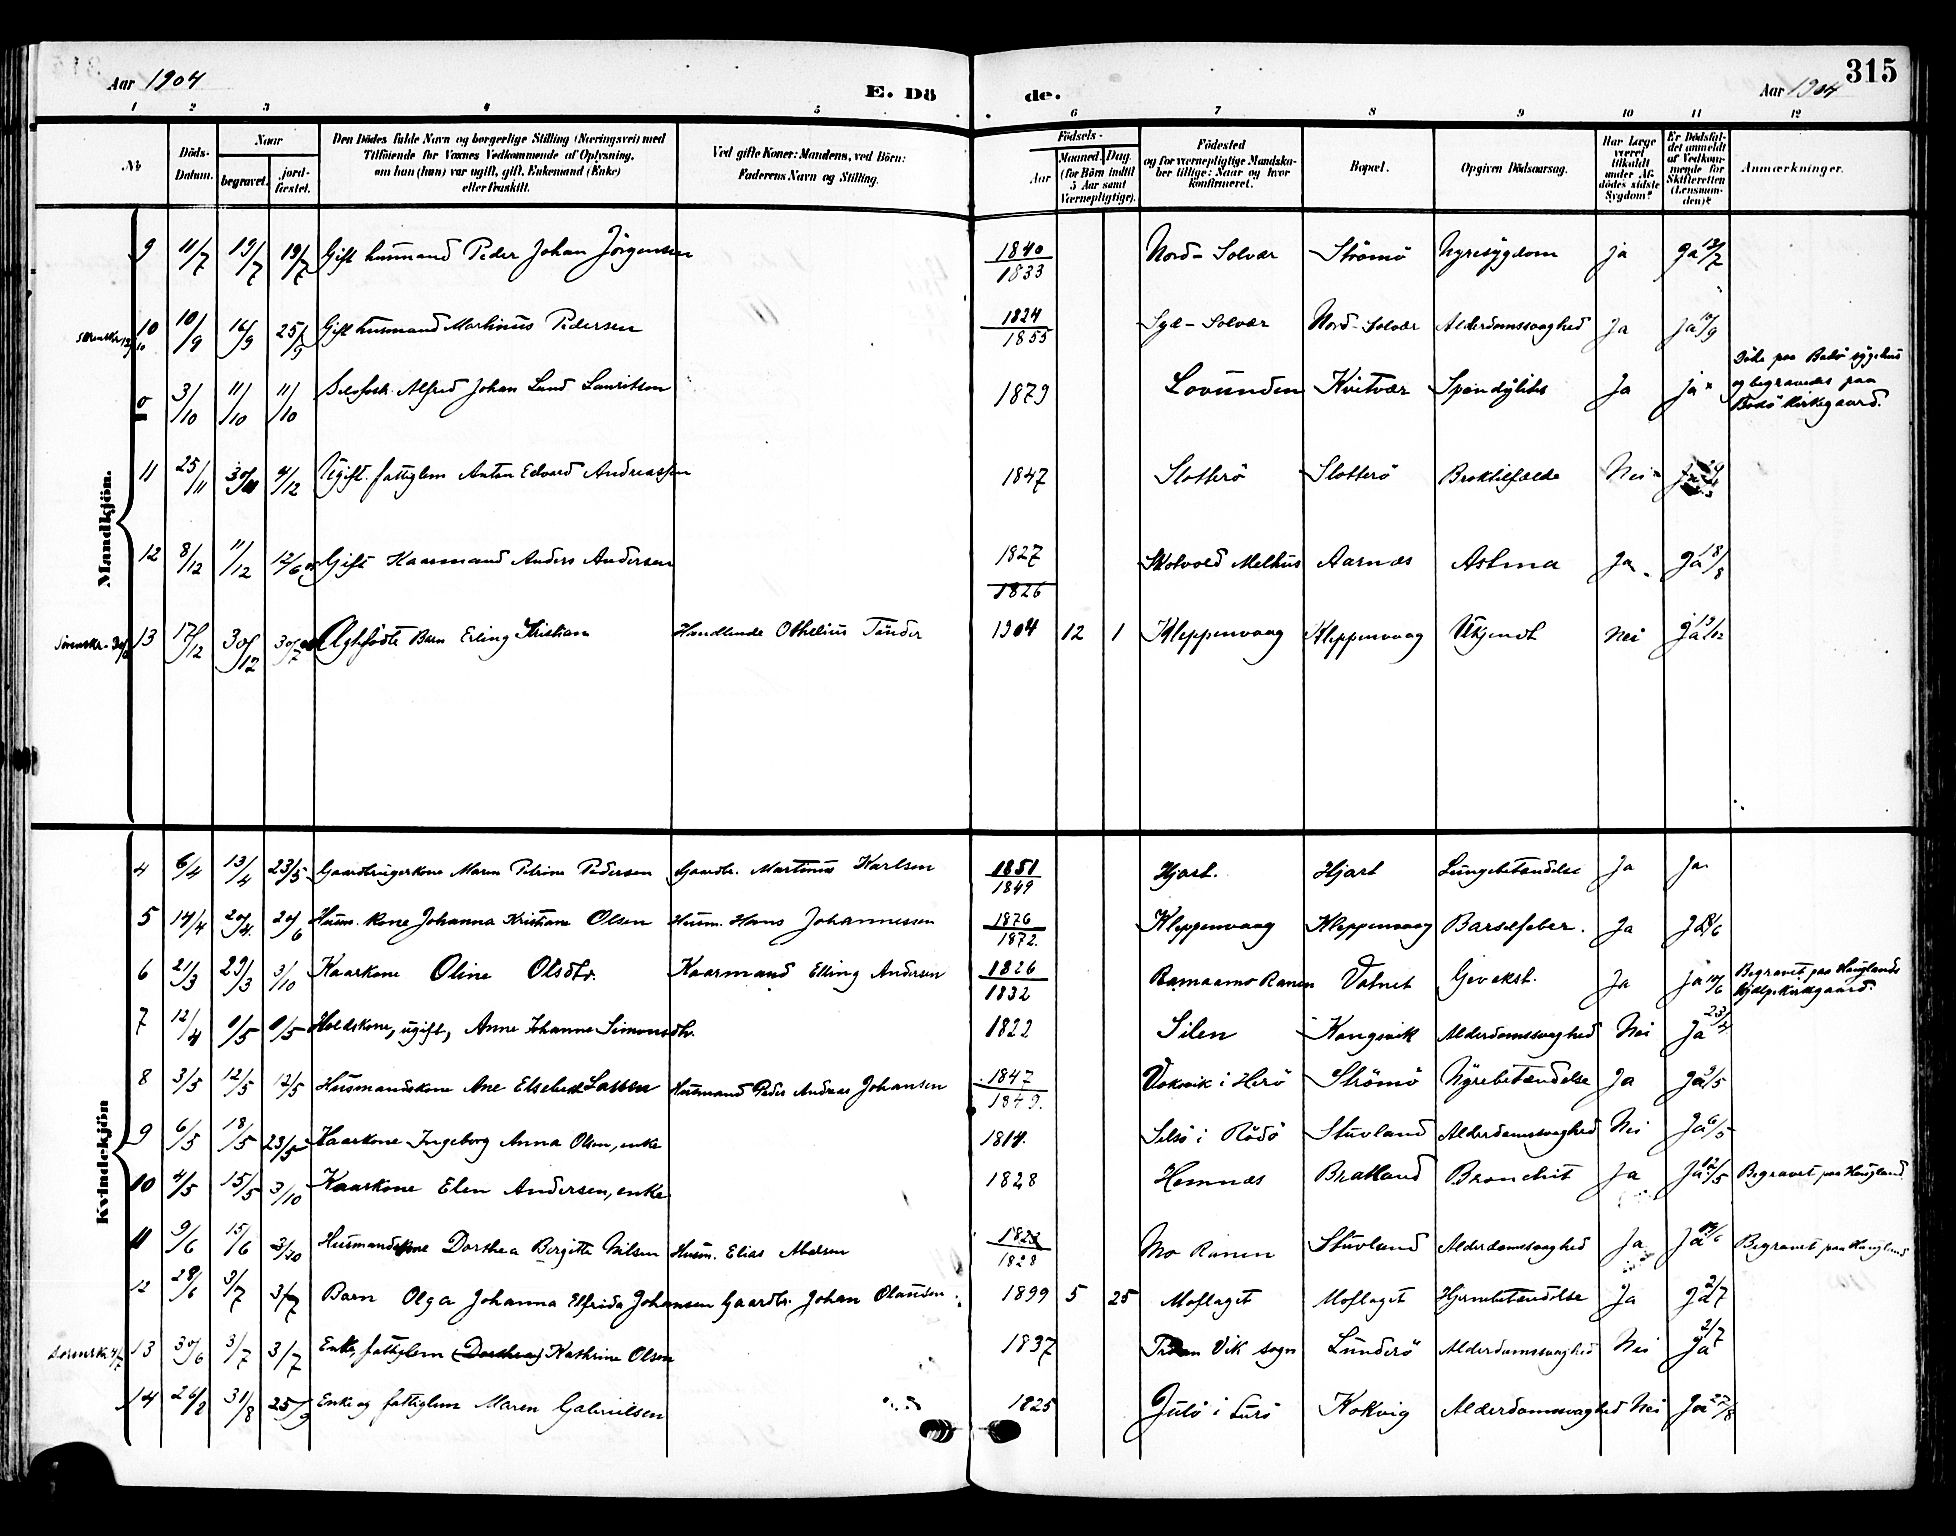 315
Aar 1904 E. Dö de. Aar 1904
1 2 3 4 5 6 7 8 9 10 11 12
No
Döds-Datum.
Naar
begravet.
jord-fæstet.
Den Dödes fulde Navn og borgerlige Stilling (Næringsvei) med
Tilföiende for Voxnes Vedkommende af Oplysning,
om hun (han) var ugift, gift, Enkemand (Enke)
eller fraskilt.
Ved gifte Koner: Mandens, ved Börn:
Faderens Navn og Stilling.
Födsels-
Aar
Maaned. Dag.
(for Börn indtil
5 Aar samt
Værnepligtige).
Födested
og for værnepligtige Mandska-
ber tillige: Naar og hvor
konfirmeret.
Bopæl.
Opgiven Dödsaarsag.
Har Læge
været
tilkaldt
under Af-
dödes sidste
Sygdom?
Er Dödsfal-
det anmeldt
af Vedkom-
mende for
Skifteretten
(Lensman-
den)?
Anmærkninger.
Mandkjön.
9 11/7 13/7 13/7 Gift husmand Peder Johan Jörgensen 1840/1833 Nord-Solvær Strömö Nyresygdom ja Ja 13/7
10 10/9 16/9 25/9 Gift husmand Martinus Pedersen 1824/1855 Syd-Solvær Nord-Solvær Alderdomssvaghed Ja Ja /9
0 3/10 11/10 11/10 Selvfosk. Alfred Johan Lund Lauritsen 1879 Lovunden Kvitvær Spondylitis Ja ja Döde paa Bodö sygehus
og begravedes paa
Bodö Kirkegaard.
11 25/11 30/11 4/12 Ugift fattiglem Anton Edvard Andreassen 1847 Slotterö Slotterö Broktilfælde Nei
12 8/12 11/12 12/6 05 Gift Kaarmand Anders Andersen 1827/1826 Skotvold Melhus Aarnæs Astma Ja Ja 18/8
13 17/12 30/12 30/7 Ægtefödte Barn Erling Kristian Handlende Othelius Tönder 1904 12 1 Kleppenvaag Kleppenvaag Ukjendt Nei Ja 19/12
Kvindekjön
4 6/4 13/4 23/5 Gaardbrugerkone Maren Petrine Pedersen Gaardbr. Martinus Karlsen 1851/1849 Hjart. Hjart Lungebetændelse Ja Ja
5 14/4 20/4 20/6 Husm. kone Johanna Kristiane Olsen Husm. Hans Johannessen 1876/1872. Kleppenvaag Kleppenvaag Barselfeber. Ja Ja 8/6
6 21/3 29/3 3/10 Kaarkone Oline Olsdtr. Kaarmand Elling Andersen 1826/1832 Ranen Vatnet Gevækst. Ja Ja 14/6 Begravet paa Hauglands
Hjælpekirkegaard.
7 12/4 9/5 9/5 Holdskone, ugift, Anne Johanne Simonsdtr. 1822 Silen Kongsvik Alderdomssvaghed Nei Ja 23/4
8 3/5 12/5 12/5 Husmandskone Ane Elsebet Larsen Husmand Peder Andreas Johansen 1847/1849. Vokvik i Herö Strömö Nyrebetændelse Ja Ja 9/5
9 6/5 18/5 23/5 Kaarkone Ingeborg Anna Olsen, enke 1814. Selsö i Rödö Stuvland Alderdomssvaghed Nei Ja 6/5
10 4/5 15/5 3/10 Kaarkone Elen Andersen, enke 1828 Hemnæs Bratland Bronchit Ja Ja 12/5 Begravet paa Haugland
11 9/6 15/6 3/10 Husmandskone Dorthea Bergitte Nilsen Husm. Elias Abelsen 1823/1828 Mo Ranen Stuvland Alderdomssvaghed Ja Ja /6 Begravet paa Haugland
12 28/6 3/7 3/7 Barn Olga Johanna Elfrida Johansen Gaardbr. Johan Olausen 1899 5 25 Moflaget Moflaget Hjernebetændelse Ja Ja 2/7
13 30/6 3/7 3/7 Enke, fattiglem (Dorthea) Kathrine Olsen 1837 Vik sogn Lunderö Alderdomssvaghed Nei Ja 2/7
14 26/8 31/8 25/9 Enke og fattiglem Maren Gabrielsen 1825 Julö i Lurö Kokvig Alderdomssvaghed Nei Ja 27/8